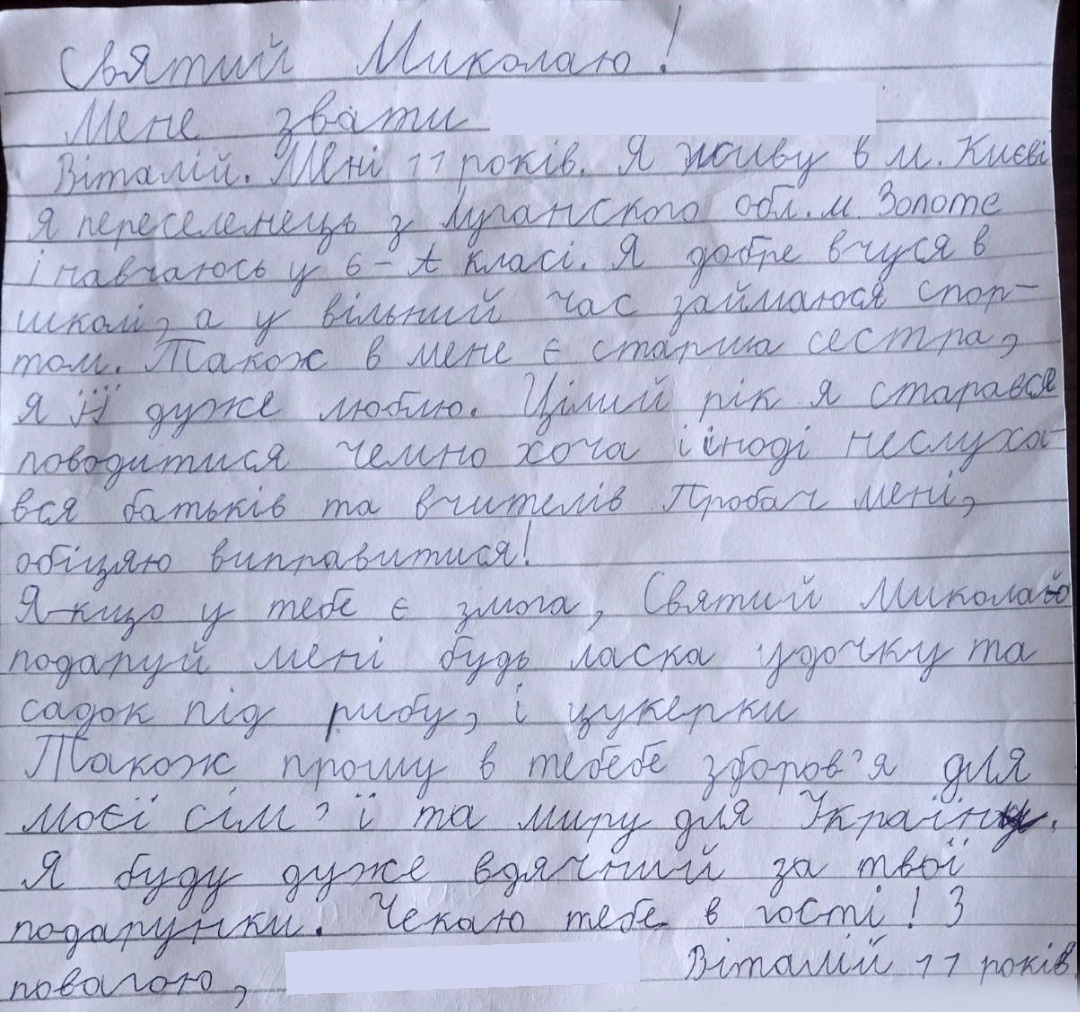 Святий Миколаю!
Мене звати
Віталій. Мені 11 років. Я живу в м. Києві
Я переселенець з Луганского обл. м. Золоте
і навчаюсь у 6-А класі. Я добре вчуся в
школі, а у вільний час займаюся спор-
том. Також в мене є старша сестра,
я її дуже люблю. Цілий рік я старався
поводитися чемно хоча і іноді неслуха-
вся батьків та вчителів Пробач мені,
обіцяю виправитися!
Якщо у тебе є змога, Святий Миколаю
подаруй мені будь ласка удочку та
садок під рибу, і цукерки
Також прошу в тебебе здоров'я для
моєї сім'ї та миру для України.
Я буду дуже вдячний за твої
подарунки. Чекаю тебе в гості! З
повагою, Віталій 11 років